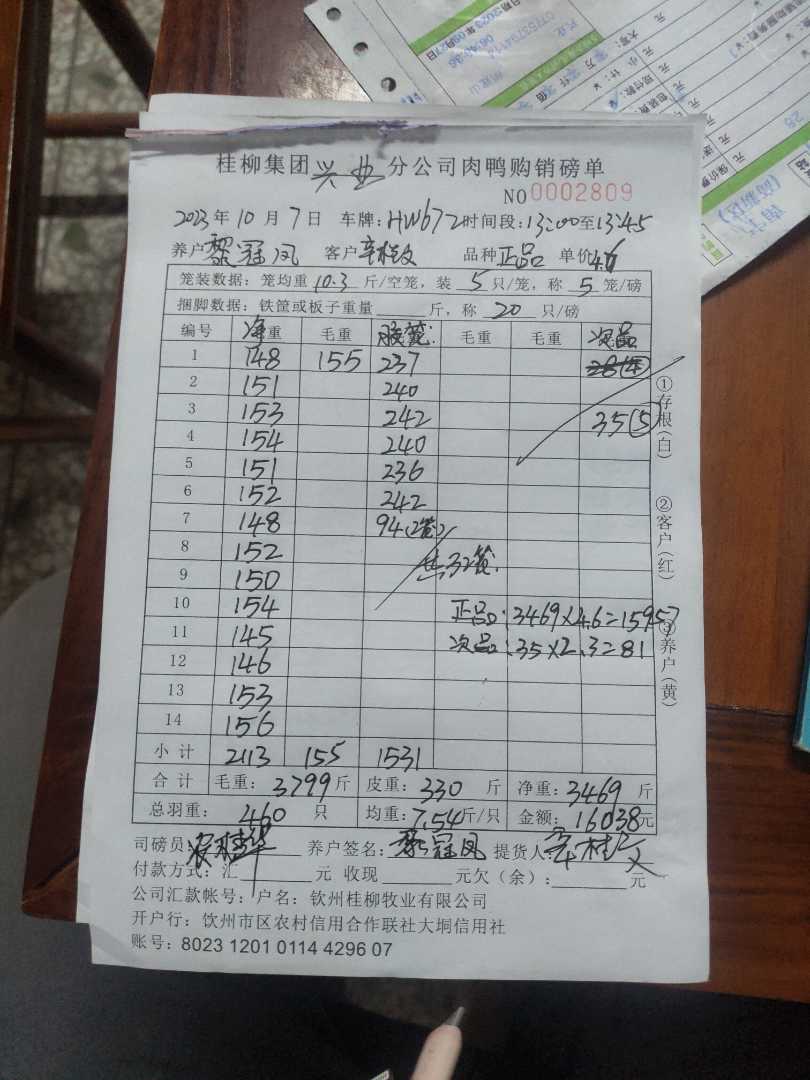 日期2023年09月27日
桂柳集团兴业分公司肉鸭购销磅单
NO 0002809
2023年10月7日 车牌:HW672 时间段:13:00至13:45
养户 黎冠凤 客户 辛桂文 品种 正品 单价 4.6
笼装数据：笼均重 10.3 斤/空笼，装 5 只/笼，称 5 笼/磅
捆脚数据：铁筐或板子重量____斤，称 20 只/磅
编号 净重 毛重 胶笼 毛重 毛重 次品
1 148 155 237 28(4)
2 151 240
3 153 242 35(5)
4 154 240
5 151 236
6 152 242
7 148 94(2笼)
8 152 共32笼
9 150
10 154 正品:3469×4.6=15957
11 145 次品:35×2.3=81
12 146
13 153
14 156
小计 2113 155 1531
合计 毛重：3799斤 皮重：330 斤 净重：3469 斤
总羽重： 460 只 均重：7.54斤/只 金额：16038元
司磅员: 养户签名：黎冠凤 提货人:辛桂文
付款方式：汇____元 收现____元欠（余）：____元
公司汇款帐号：户名：钦州桂柳牧业有限公司
开户行：钦州市区农村信用合作联社大垌信用社
账号：8023 1201 0114 4296 07
①存根(白)
②客户(红)
③养户(黄)